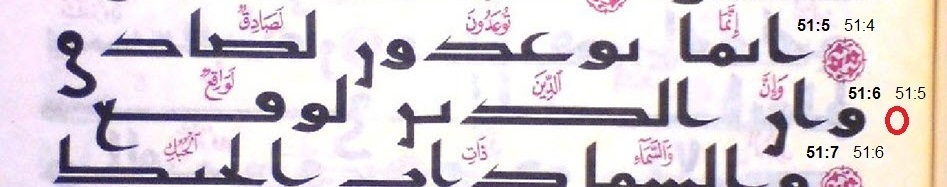 51:5 51:4
إِنَّمَا تُوعَدُونَ لَصَادِقٌ
انما توعدون لصادق
51:6 51:5
وَإِنَّ الدِّينَ لَوَاقِعٌ
وان الدين لوقع
51:7 51:6
وَالسَّمَاءِ ذَاتِ الْحُبُكِ
والسما ذات الحبك